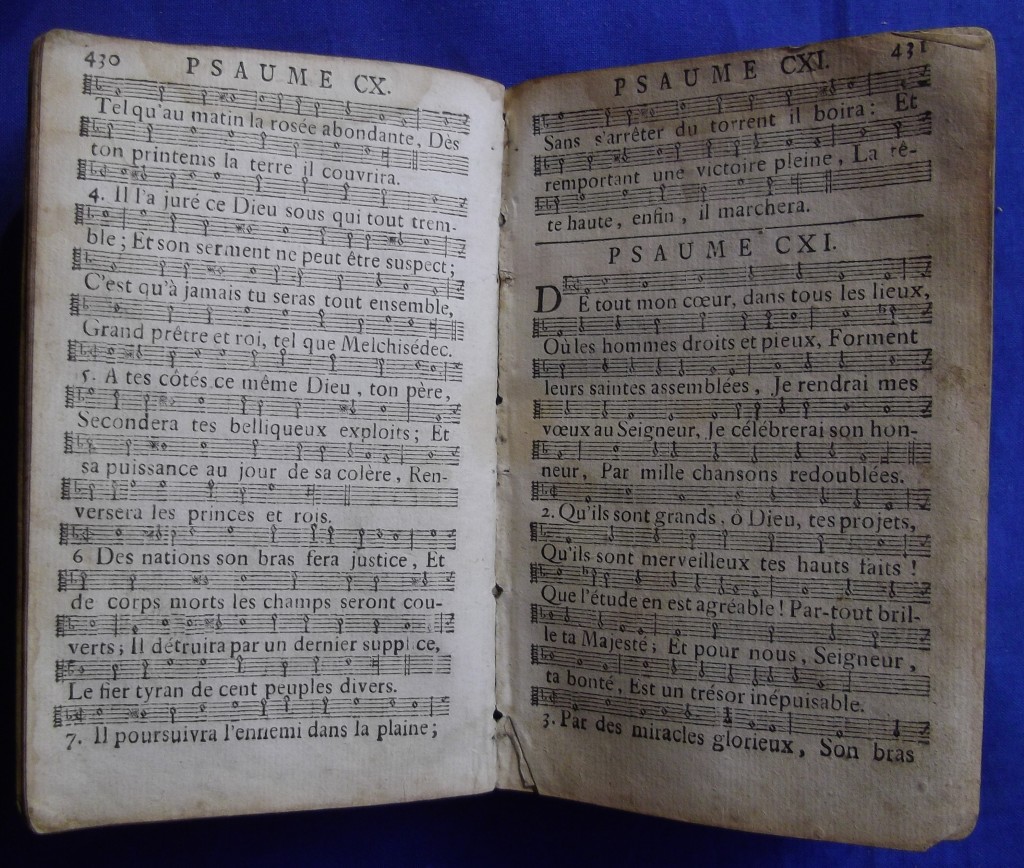 430
PSAUME CX.
Tel qu'au matin la rosée abondante, Dès
ton printems la terre il couvrira.
4. Il l'a juré ce Dieu sous qui tout trem-
ble; Et son serment ne peut être suspect;
C'est qu'à jamais tu seras tout ensemble,
Grand prêtre et roi, tel que Melchisédec.
5. A tes côtés ce même Dieu, ton père,
Secondera tes belliqueux exploits; Et
sa puissance au jour de sa colère, Ren-
versera les princes et rois.
6 Des nations son bras fera justice, Et
de corps morts les champs seront cou-
verts; Il détruira par un dernier supplice,
Le fier tyran de cent peuples divers.
7. Il poursuivra l'ennemi dans la plaine;
PSAUME CXI.
431
Sans s'arrêter du torrent il boira: Et
remportant une victoire pleine, La tê-
te haute, enfin, il marchera.
PSAUME CXI.
DE tout mon cœur, dans tous les lieux,
Où les hommes droits et pieux, Forment
leurs saintes assemblées, Je rendrai mes
vœux au Seigneur, Je célébrerai son hon-
neur, Par mille chansons redoublées.
2. Qu'ils sont grands, ô Dieu, tes projets,
Qu'ils sont merveilleux tes hauts faits!
Que l'étude en est agréable! Par-tout bril-
le ta Majesté; Et pour nous, Seigneur,
ta bonté, Est un trésor inépuisable.
3. Par des miracles glorieux, Son bras